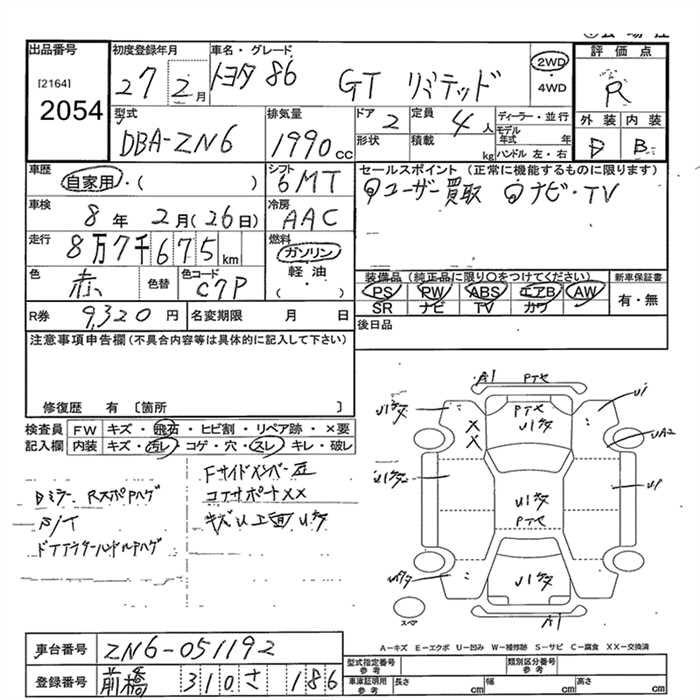 出品番号
[2164]
2054
初度登録年月
27 2月
車名・グレード
トヨタ 86 GT リミテッド
2WD
・
4WD
評価点
R
外装 内装
D B
型式
DBA-ZN6
排気量
1990cc
ドア 2
形状
定員 4人
積載 kg
ディーラー・並行
モデル年式 年
ハンドル 左・右
車歴
自家用・( )
シフト
6MT
車検
8年 2月(26日)
冷房
AAC
走行
8万7千675km
燃料
ガソリン
軽油
( )
色
赤
色替
色コード
C7P
R券 9,320円
名変期限 月 日
セールスポイント(正常に機能するものに限ります)
ユーザー買取 ナビ・TV
装備品(純正品に限り○をつけてください)
PS PW ABS エアB AW
SR ナビ TV カワ
新車保証書
有・無
後日品
注意事項申告欄(不具合内容等は具体的に記入して下さい)
修復歴 有 〔箇所 〕
検査員 FW キズ・飛石・ヒビ割・リペア跡・×要
記入欄 内装 キズ・汚レ・コゲ・穴・スレ・キレ・破レ
Fサイドメンバー
コアサポートXX
キズU上面
ドアアウターハンドルハゲ
A1
PTセ
U1
X
X
UA2
U1
PTセ
A1
スペア
A-キズ E-エクボ U-凹み W-補修跡 S-サビ C-腐食 XX-交換済
車台番号 ZN6-051192
登録番号 前橋 310 さ 186
型式指定番号
参考
類別区分番号
参考
車庫証明用
参考
長さ cm
幅 cm
高さ cm